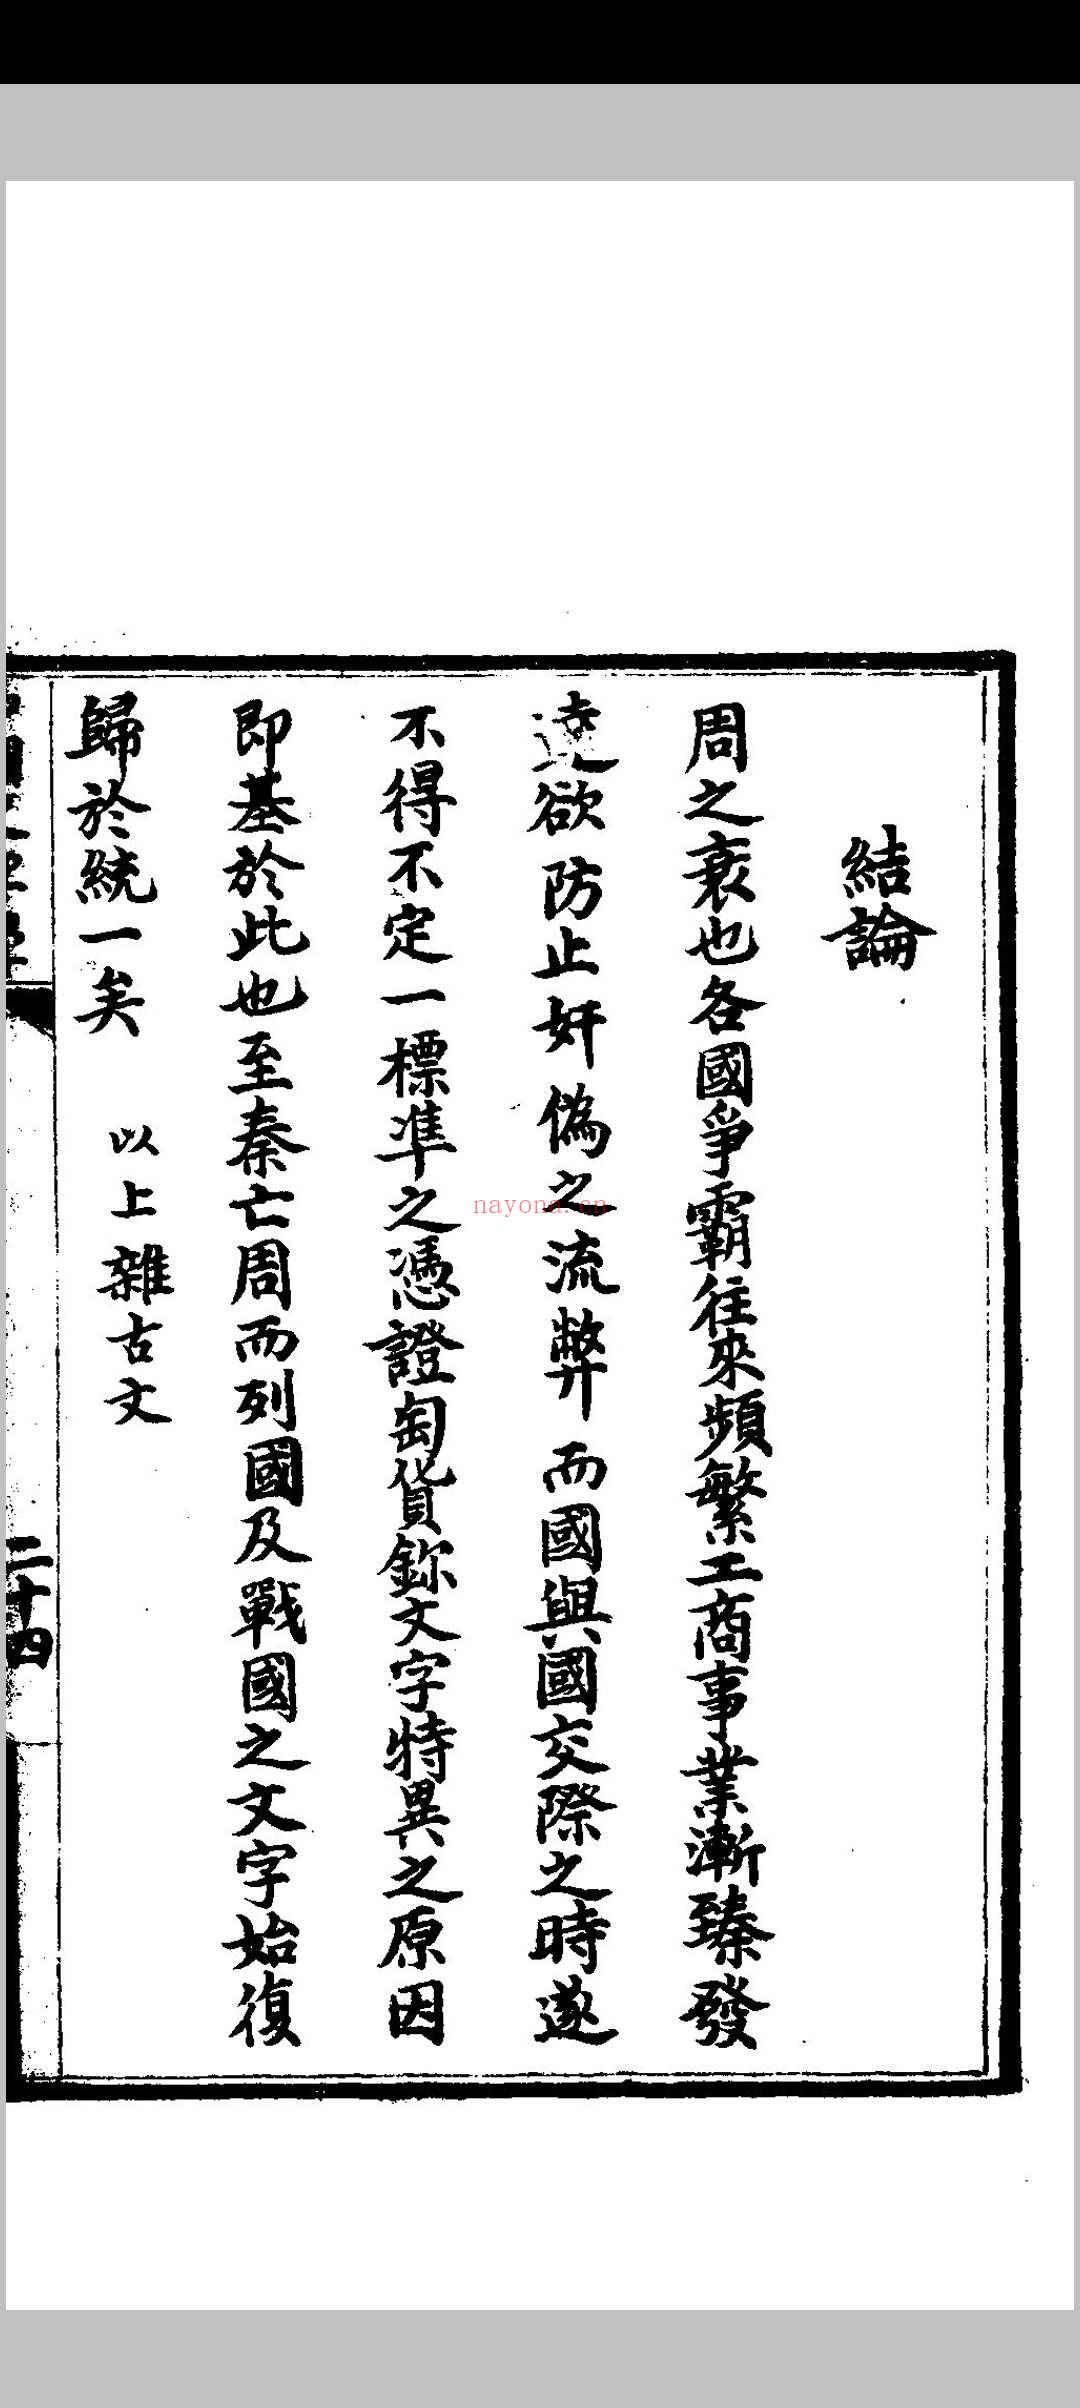 結論
周之衰也各國爭霸往來頻繁工商事業漸臻發
達欲防止奸偽之流弊而國與國交際之時遂
不得不定一標準之憑證匋貨鉨文字特異之原因
即基於此也至秦亡周而列國及戰國之文字始復
歸於統一矣 以上雜古文
二十四
nayona.cn